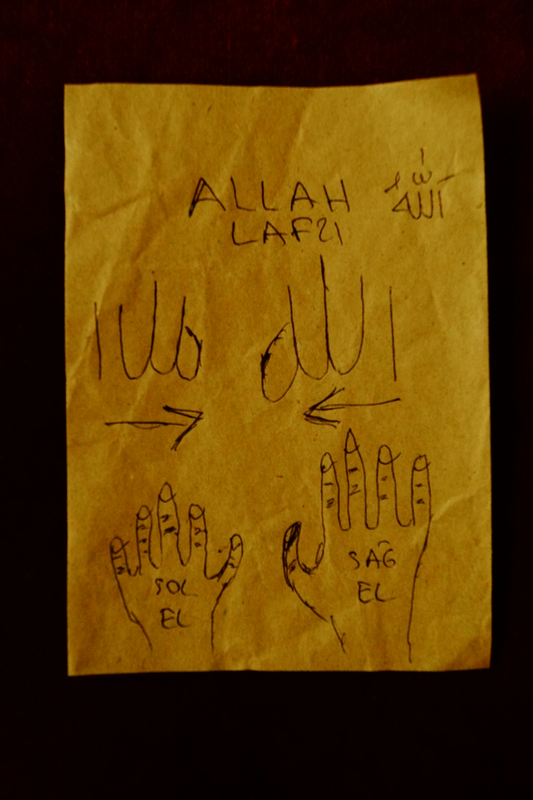 ALLAH الله
LAFZI
الله
SOL
EL
SAĞ
EL